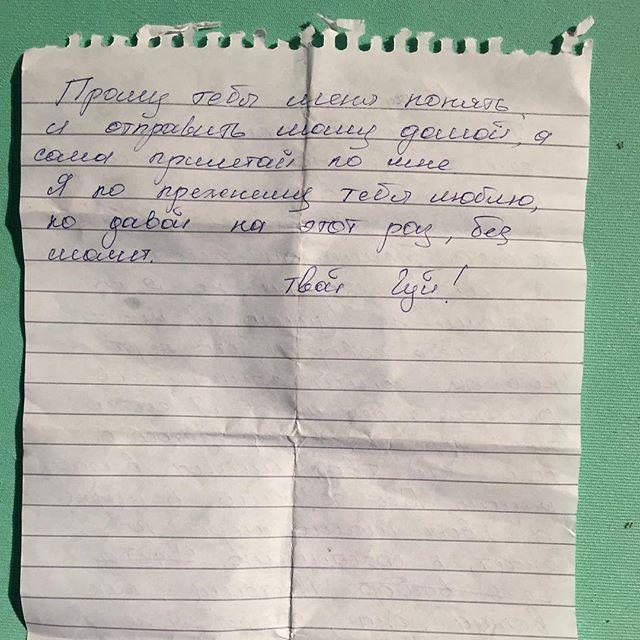 Прошу тебя меня понять
и отправить маму домой, а
сама прилетай ко мне
Я по прежнему тебя люблю,
но давай на этот раз, без
мамы.
твой Гуй!